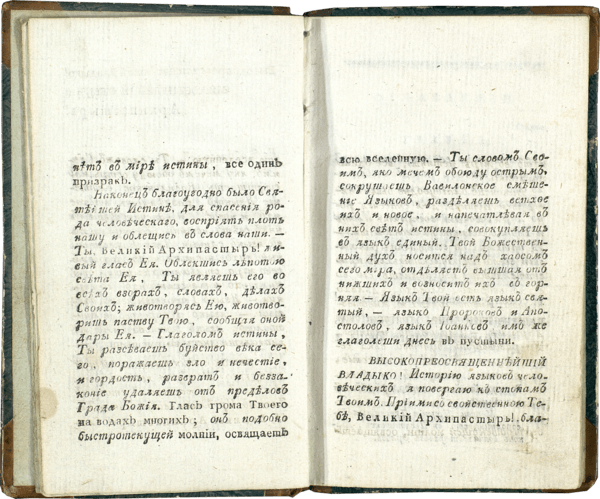 нѣтъ въ мірѣ истины, все одинъ
призракъ.
Наконецъ благоугодно было Свя-
тѣйшей Истинѣ, для спасенія ро-
да человѣческаго, воспріять плоть
нашу и облещись въ слова наши. —
Ты, Великій Архипастырь! я и-
вый гласъ Ея. Облектись лѣпотою
свѣта Ея, Ты являешь его во
всѣхъ взорахъ, словахъ, дѣлахъ
Своихъ; животворясь Ею, животво-
ришь паству Твою, сообщая оной
дары Ея. — Глаголомъ истины,
Ты разсѣваешь буйство вѣка се-
го, поражаешь зло и нечестіе,
и гордость, развратъ и безза-
коніе удаляешь отъ предѣловъ
Града Божія. Гласъ грома Твоего
на водахъ многихъ; онъ подобно
быстротекущей молніи, освящаетъ
всю вселенную. — Ты словомъ Сво-
имъ, яко мечемъ обоюду острымъ,
сокрушаешь Вавилонское смѣше-
ніе Языковъ, раздѣляешь ветхое
ихъ и новое, и напечатлѣвая въ
нихъ свѣтъ истины, совокупляешь
въ языкъ единый. Твой Божествен-
ный духъ носится надъ хаосомъ
сего міра, отдѣляетъ вышшая отъ
нижшихъ и возноситъ ихъ въ гор-
няя — Языкъ Твой есть языкъ свя-
тый, — языкъ Пророковъ и Апо-
столовъ, языкъ Іоанновъ имъ же
глаголеши днесь въ пустыни.
ВЫСОКОПРЕОСВЯЩЕННѢЙШІЙ
ВЛАДЫКО! Исторію языковъ чело-
вѣческихъ я повергаю къ стопамъ
Твоимъ. Пріими со свойственною Те-
бѣ, Великій Архипастырь! бла-